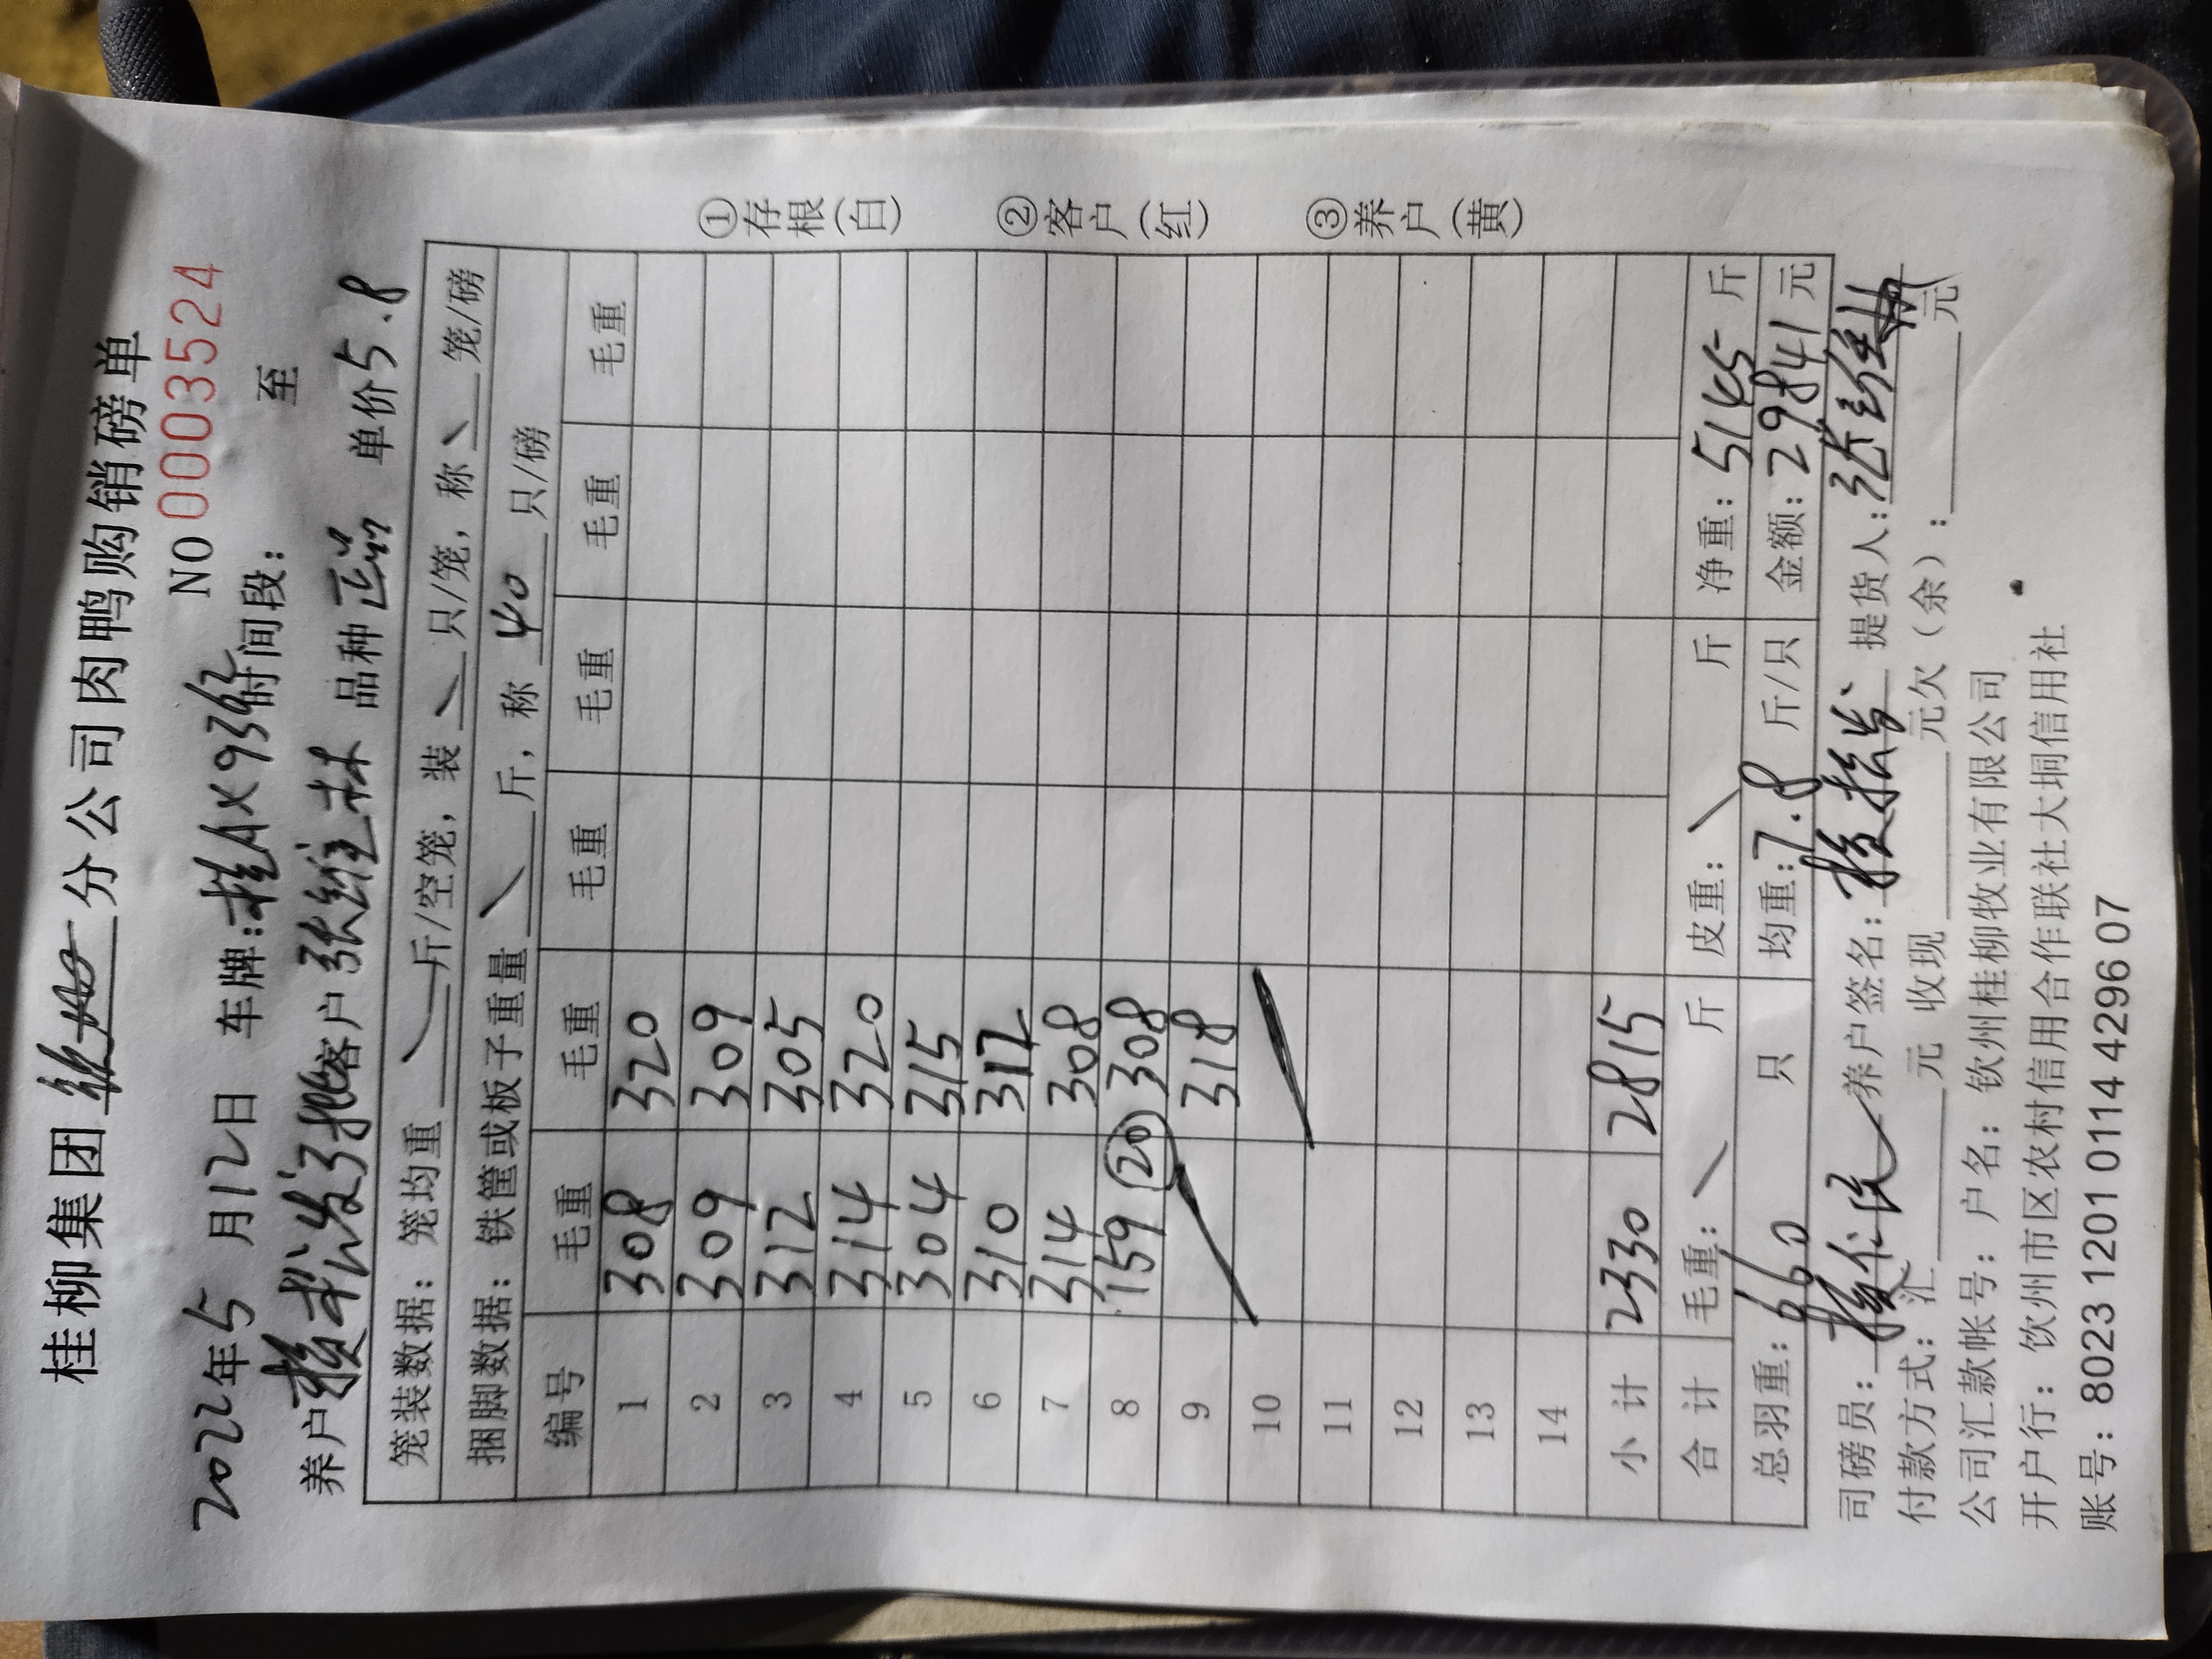 桂柳集团 分公司肉鸭购销磅单
NO 0003524
2022年5月12日 车牌:桂AX9362 时间段: 至
养户 客户 张维林 品种 正品 单价 5.8
笼装数据: 笼均重 斤/空笼, 装 只/笼, 称 笼/磅
捆脚数据: 铁筐或板子重量 斤, 称 40 只/磅
编号 毛重 毛重 毛重 毛重 毛重 毛重
1 308 320
2 309 309
3 312 305
4 314 320
5 304 315
6 310 312
7 314 308
8 159 (20) 308
9 318
10
11
12
13
14
小计 2330 2815
合计 毛重: 斤 皮重: 斤 净重: 5145 斤
总羽重: 660 只 均重: 7.8 斤/只 金额: 29841 元
司磅员: 养户签名: 提货人:
付款方式: 汇 元 收现 元欠(余): 元
公司汇款帐号: 户名: 钦州桂柳牧业有限公司
开户行: 钦州市区农村信用合作联社大垌信用社
账号: 8023 1201 0114 4296 07
①存根(白) ②客户(红) ③养户(黄)